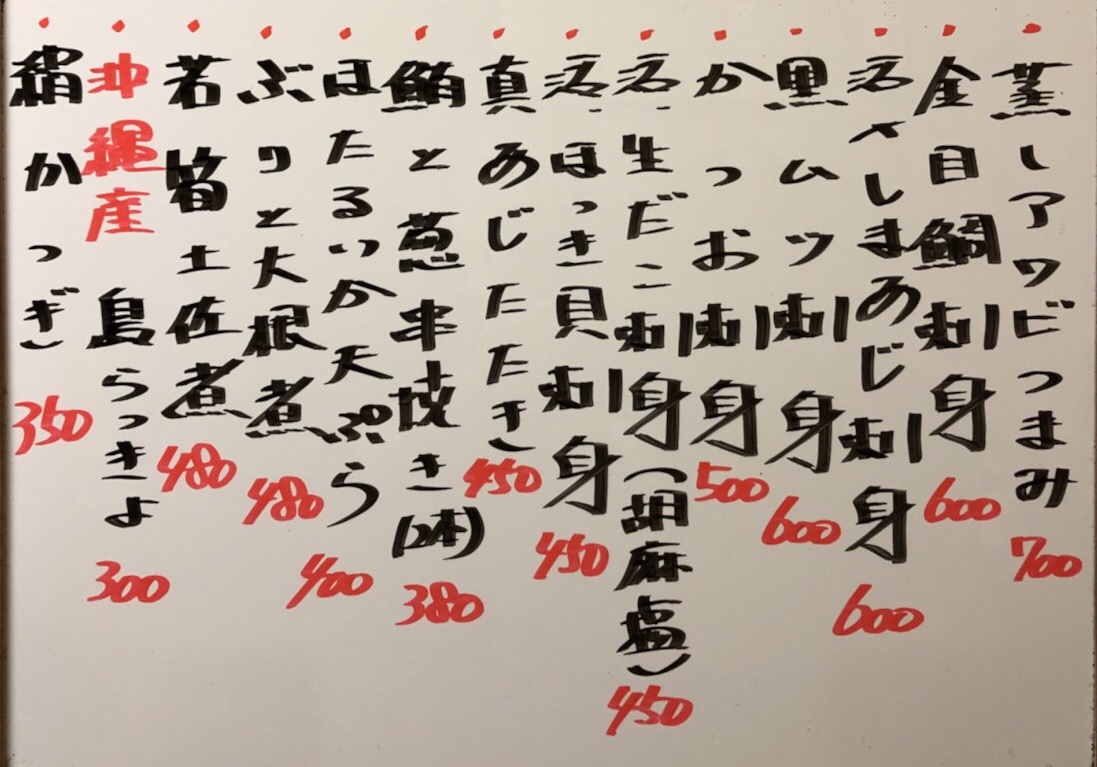 蒸しアワビつまみ 700
金目鯛刺身 600
活〆しまあじ刺身 600
黒ムツ刺身 600
かつお刺身 500
活生だこ刺身(胡麻塩) 450
活ほっき貝刺身 450
真あじたたき 450
鮪と葱串焼き(2本) 380
ほたるいか天ぷら 400
ぶりと大根煮 480
若筍土佐煮 480
沖縄産 島らっきょ 300
絹かつぎ 350